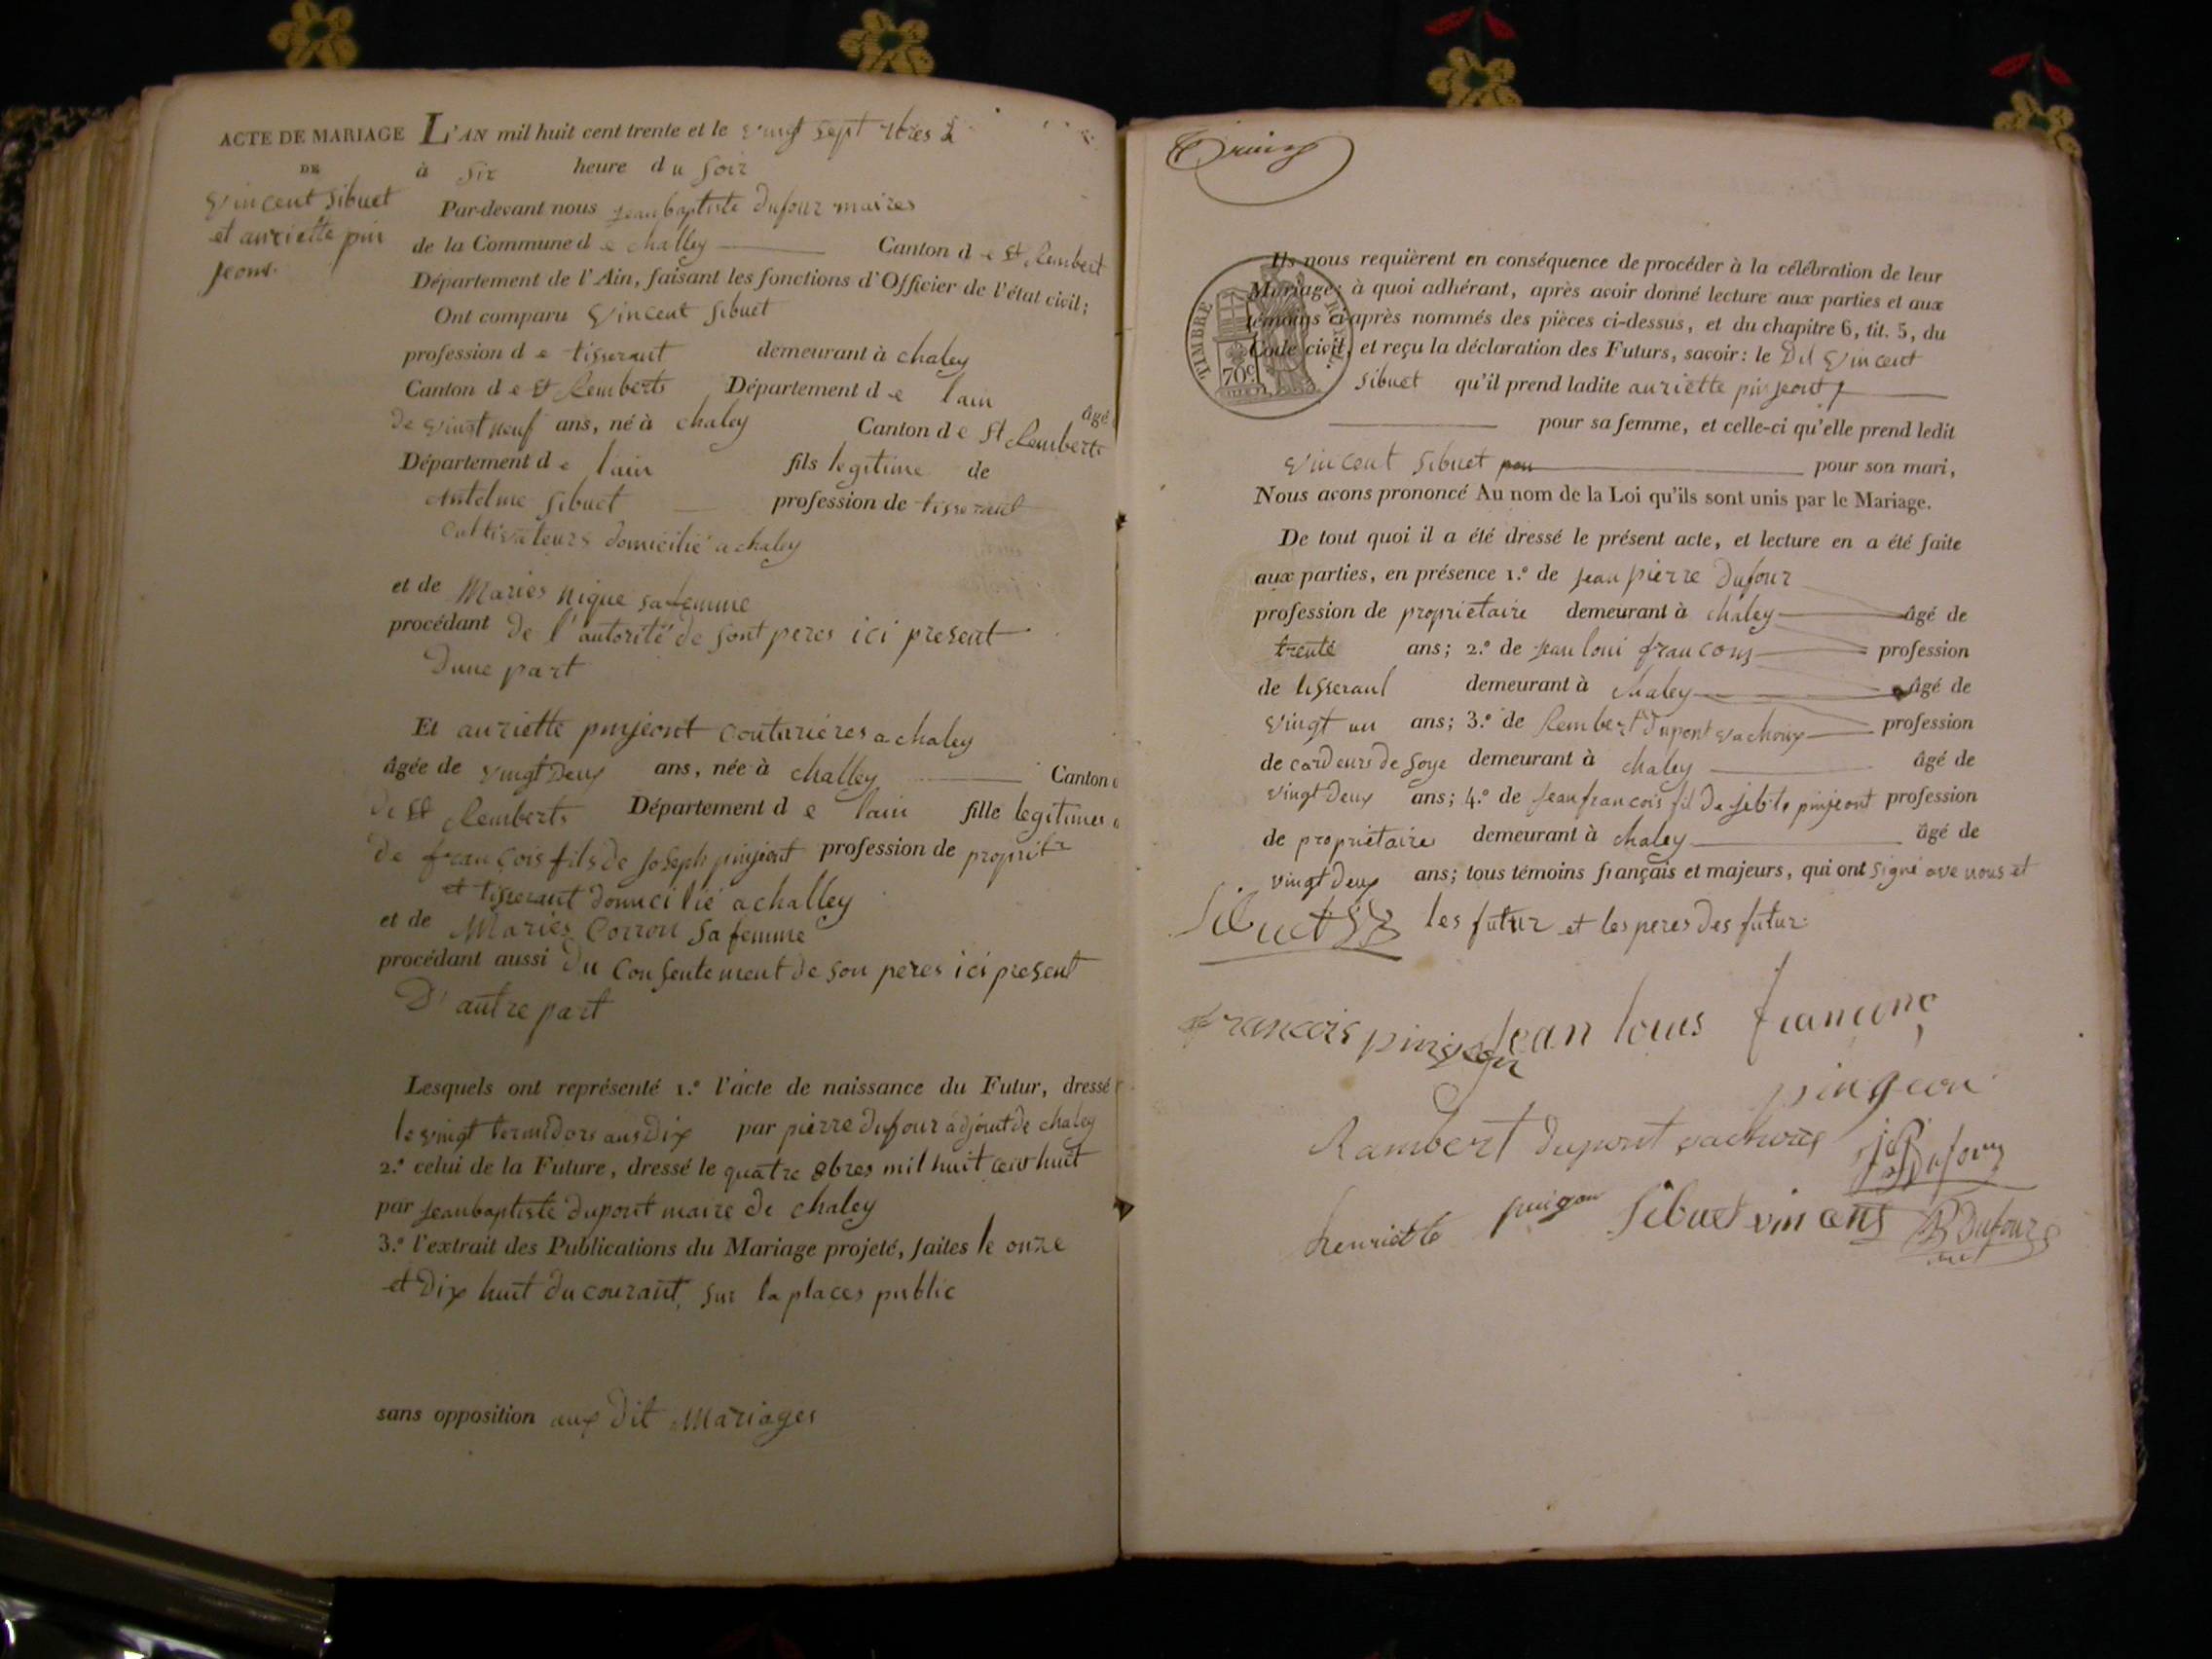 ACTE DE MARIAGE
DE
Vincent Sibuet
et auriette pin
jeont
L'AN mil huit cent trente et le vingt sept
à Six heure du Soir
Par-devant nous jeanbaptiste Dufour maires
de la Commune de challey Canton de St Rembert
Département de l'Ain, faisant les fonctions d'Officier de l'état civil;
Ont comparu Vincent Sibuet
profession de tisseraut demeurant à chaley
Canton de St Remberts Département de lain âgé
de vint neuf ans, né à chaley Canton de St Remberts
Département de lain fils legitime de
Antelme Sibuet profession de tisseraut
Cultivateurs domicilié a chaley
et de Maries nique sa femme
procédant de l'autorité de sont peres ici present
Dune part
Et auriette pinjeont Couturiéres a chaley
âgée de vingt Deux ans, née à challey Canton
de St Remberts Département de lain fille legitimes
de françois fils de joseph pinjeont profession de
et tisseraut domicilié a challey
et de Maries Corron Sa femme
procédant aussi du Consentement de son peres ici present
D'autre part
Lesquels ont représenté 1.º l'acte de naissance du Futur, dressé
le vingt termidors ans Dix par pierre Dufour adjoint de chaley
2.º celui de la Future, dressé le quatre 8bres mil huit cent huit
par jeanbaptiste dupont maire de chaley
3.º l'extrait des Publications du Mariage projeté, faites le onze
et Dix huit du courant, sur la places public
sans opposition aux Dit Mariages
TIMBRE ROYAL
70c
Ils nous requièrent en conséquence de procéder à la célébration de leur
Mariage; à quoi adhérant, après avoir donné lecture aux parties et aux
témoins ci-après nommés des pièces ci-dessus, et du chapitre 6, tit. 5, du
Code civil, et reçu la déclaration des Futurs, savoir: le Dit Vincent
Sibuet qu'il prend ladite auriette pinjeont
pour sa femme, et celle-ci qu'elle prend ledit
Vincent Sibuet pour son mari,
Nous avons prononcé Au nom de la Loi qu'ils sont unis par le Mariage.
De tout quoi il a été dressé le présent acte, et lecture en a été faite
aux parties, en présence 1.º de jean pierre Dufour
profession de proprietaire demeurant à chaley âgé de
trente ans; 2.º de jean loui francons profession
de tisseraut demeurant à chaley âgé de
vingt un ans; 3.º de Rembert Dupont vachoux profession
de cardeurs de soye demeurant à chaley âgé de
vingt Deux ans; 4.º de jean francois fil de pinjeont profession
de proprietaire demeurant à chaley âgé de
vingt deux ans; tous témoins français et majeurs, qui ont signé ave nous et
Sibuet les futur et les peres des futur
francois pinjon jean louis
pingeon
Rambert dupont vachoux jp Dufour
henriette pingon Sibuet vincent JB Dufour